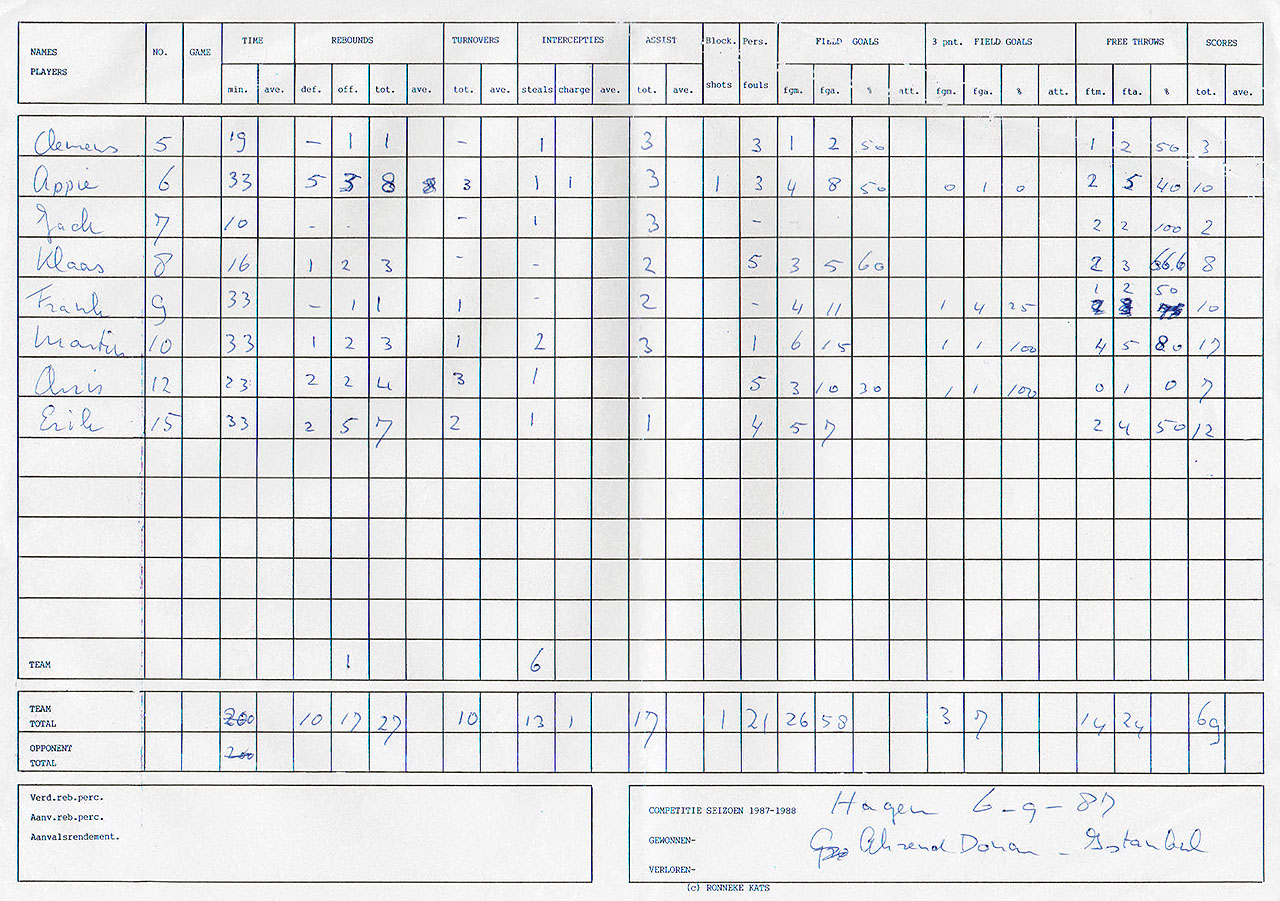 NAMES PLAYERS NO. GAME TIME REBOUNDS TURNOVERS INTERCEPTIES ASSIST Block. shots Pers. fouls FIELD GOALS 3 pnt. FIELD GOALS FREE THROWS SCORES
min. ave. def. off. tot. ave. tot. ave. steals charge ave. tot. ave. fgm. fga. % att. fgm. fga. % att. ftm. fta. % tot. ave.
Clemens 5 19 - 1 1 - 1 3 3 1 2 50 1 2 50 3
Appie 6 33 5 3 8 3 1 1 3 1 3 4 8 50 0 1 0 2 5 40 10
Jack 7 10 - - - 1 3 - 2 2 100 2
Klaas 8 16 1 2 3 - - 2 5 3 5 60 2 3 66.6 8
Frank 9 33 - 1 1 1 - 2 - 4 11 1 4 25 1 2 50 10
Martin 10 33 1 2 3 1 2 3 1 6 15 1 1 100 4 5 80 17
Chris 12 23 2 2 4 3 1 5 3 10 30 1 1 100 0 1 0 7
Erik 15 33 2 5 7 2 1 1 4 5 7 2 4 50 12
TEAM 1 6
TEAM TOTAL 200 10 17 27 10 13 1 17 1 21 26 58 3 7 14 24 69
OPPONENT TOTAL 200
Verd.reb.perc.
Aanv.reb.perc.
Aanvalsrendement.
COMPETITIE SEIZOEN 1987-1988 Hagen 6-9-87
GEWONNEN- Ahrend Donar - Istanbul
VERLOREN-
(c) RONNEKE KATS